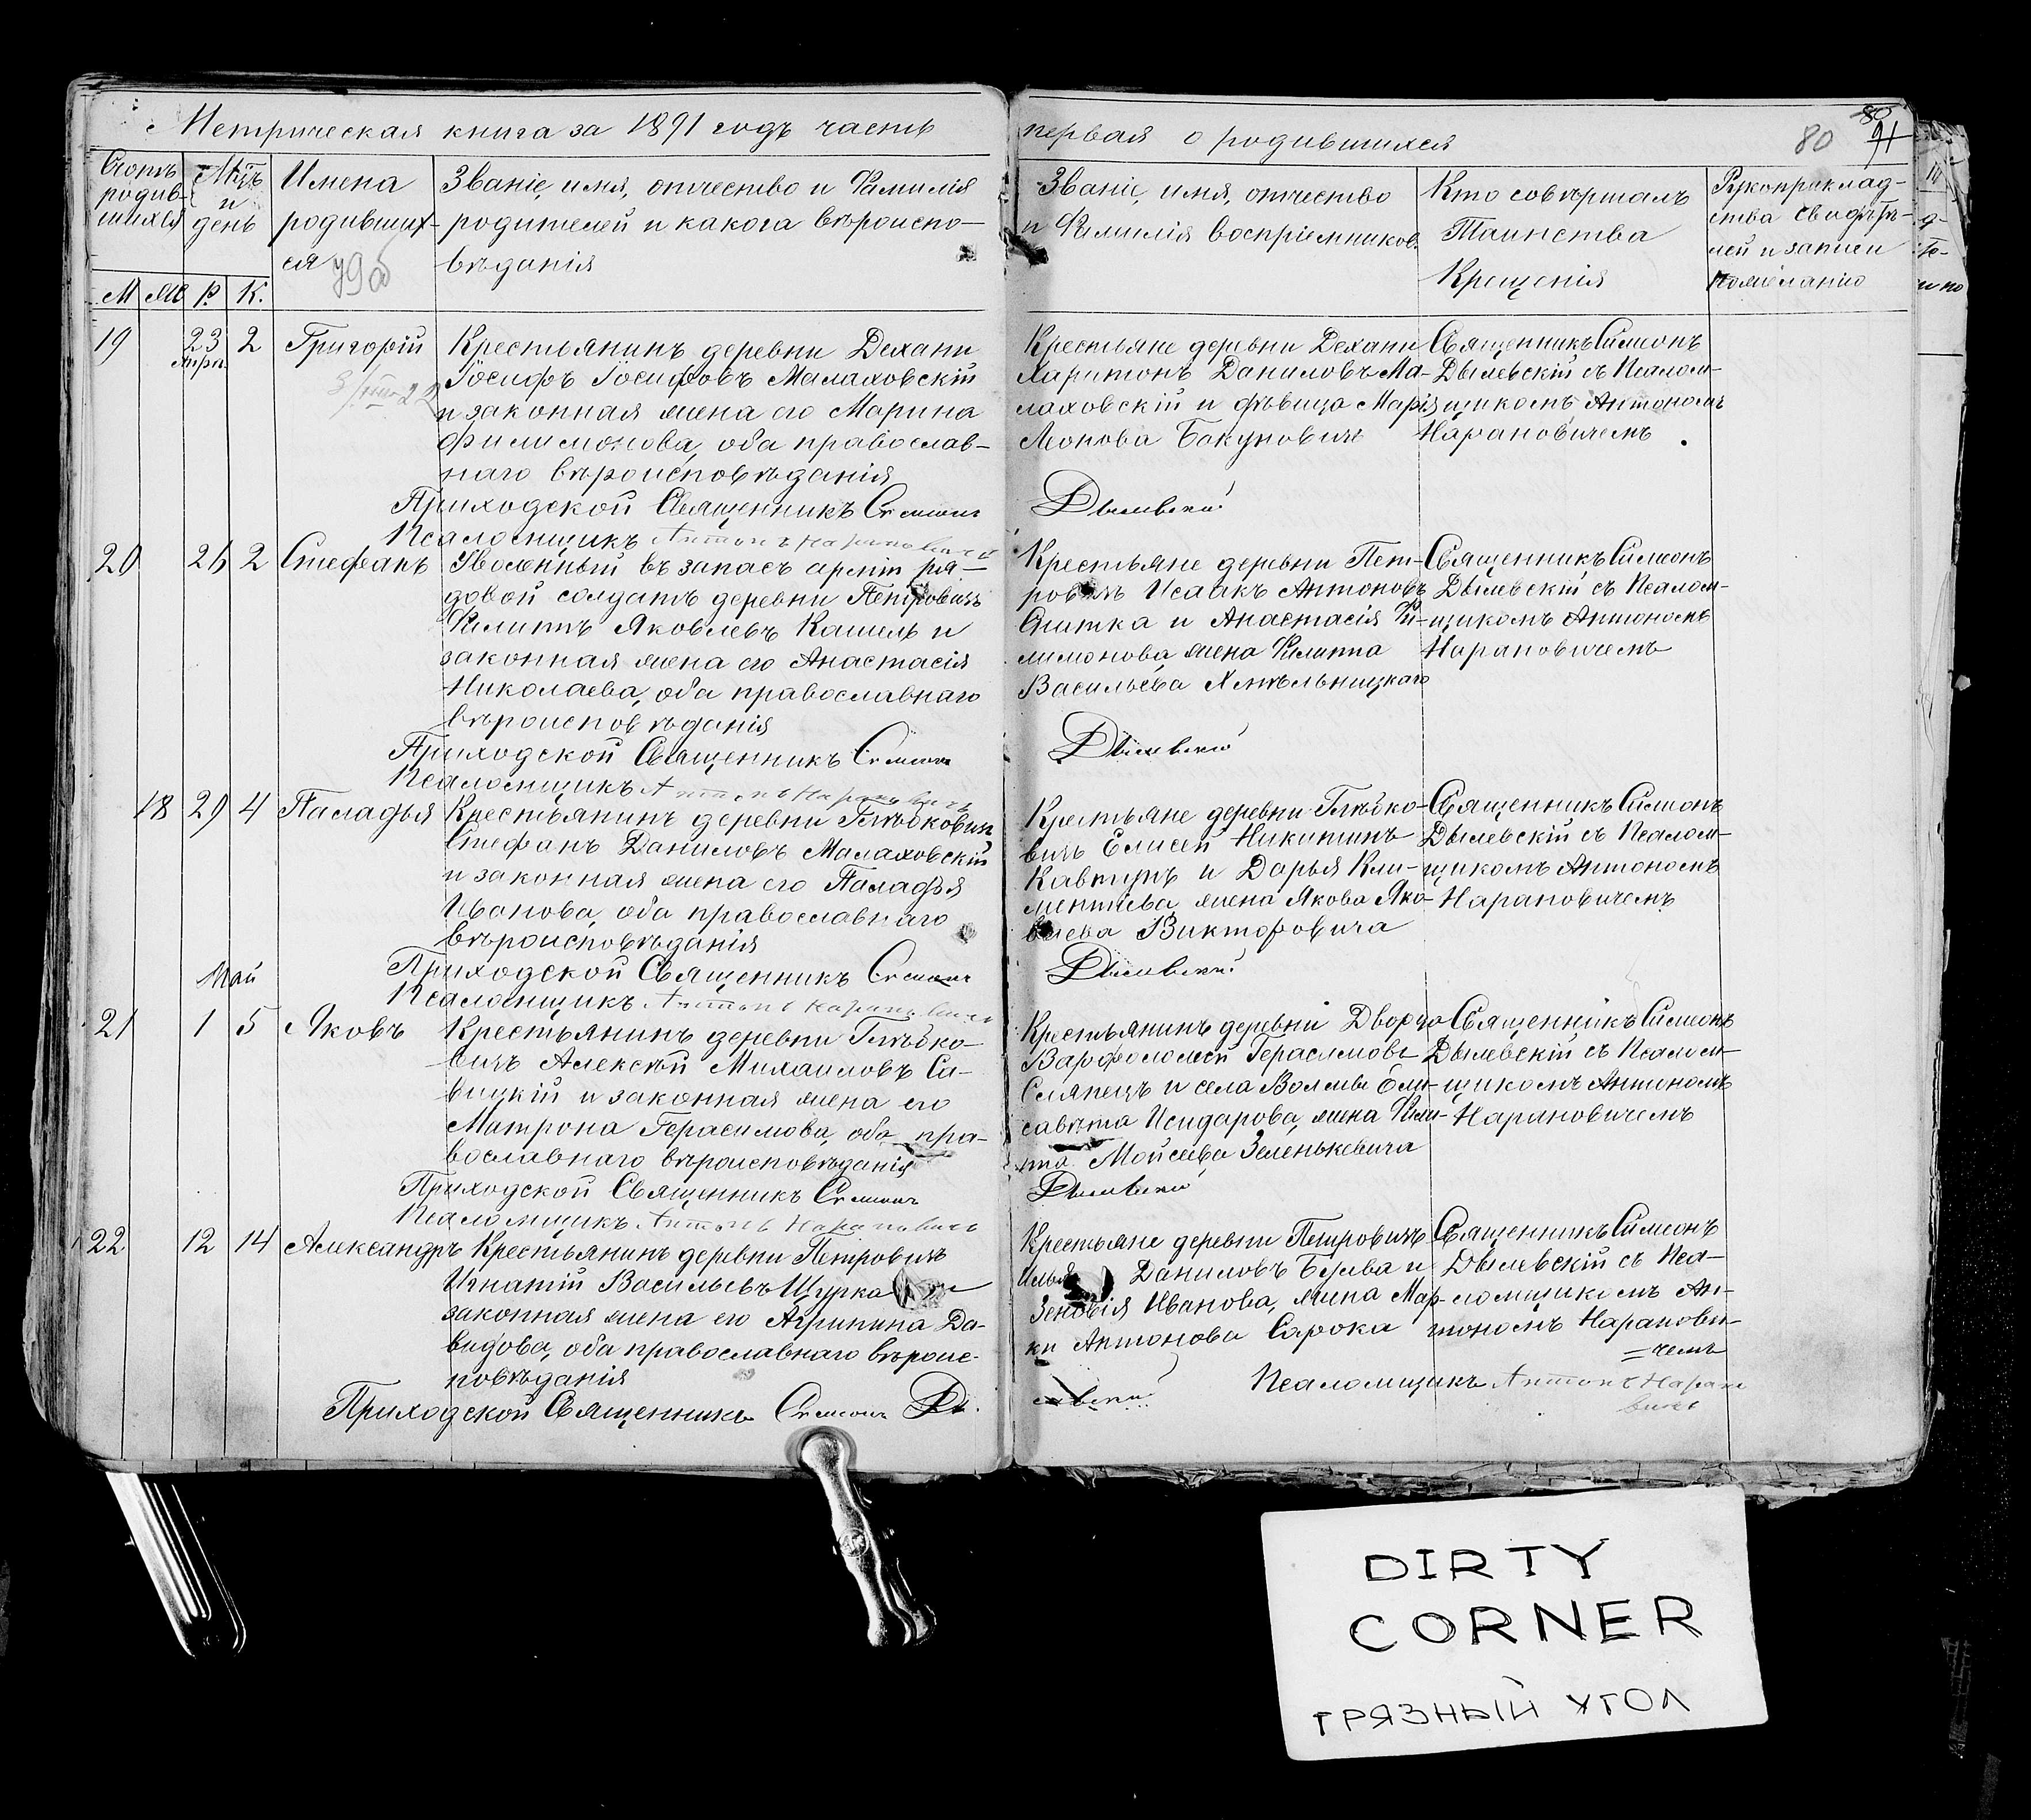 Метрическая книга за 1891 годъ часть
первая о родившихся
80
80
91
Счотъ родив- шихся
Мцъ и день
Имена родивших- ся
Званіе, имя, отчество и Фамилія
родителей и какога вѣроиспо-
вѣданія
Званіе, имя, отчество
и Фамилія воспріемниковъ
Кто совѣршалъ
Таинства
Крещенія
Рукоприклад-
ства свидѣтѣ-
лей и записи
М Ж Р. К.
19 23 2 Григорій
Апрл
Крестьянинъ деревни Дехани
Іосифъ Іосифовъ Малаховскій
и законная жена его Марина
Филимонова, оба православ-
наго вѣроисповѣданія
Приходской Священникъ Симеонъ
Псаломщикъ Антонъ Нарановичъ
Крестьяне деревни Дехани
Харитонъ Даниловъ Ма-
лаховскій и дѣвица Марія
Леонова Бакуновичъ
Дылевскій
Священникъ Симеонъ
Дылевскій съ Псалом-
щикомъ Антономъ
Нарановичемъ
20 26 2 Стефанъ
Уволенный въ запасъ арміи ря-
довой солдатъ деревни Петровичъ
Филиппъ Яковлевъ Кашель и
законная жена его Анастасія
Николаева, оба православнаго
вѣроисповѣданія
Приходской Священникъ Симеонъ
Псаломщикъ Антонъ Нарановичъ
Крестьяне деревни Пет-
ровичъ Исаакъ Антоновъ
Снитка и Анастасія Фи-
лимонова, жена Филиппа
Васильева Хмѣльницкаго
Дылевскій
Священникъ Симеонъ
Дылевскій съ Псалом-
щикомъ Антономъ
Нарановичемъ
18 29 4 Паладья
Крестьянинъ деревни Глѣбковичъ
Стефанъ Даниловъ Малаховскій
и законная жена его Паладья
Иванова, оба православнаго
вѣроисповѣданія
Приходской Священникъ Симеонъ
Псаломщикъ Антонъ Нарановичъ
Крестьяне деревни Глѣбко-
вичъ Елисей Никитинъ
Кавтунъ и Дарья Кли-
ментіева, жена Якова Яко-
влева Викторовича
Дылевскій
Священникъ Симеонъ
Дылевскій съ Псалом-
щикомъ Антономъ
Нарановичемъ
Май
21 1 5 Яковъ
Крестьянинъ деревни Глѣбко-
вичъ Алексѣй Михаиловъ Са-
вицкій и законная жена его
Матрона Герасимова, оба пра-
вославнаго вѣроисповѣданія
Приходской Священникъ Симеонъ
Псаломщикъ Антонъ Нарановичъ
Крестьянинъ деревни Дворца
Варфоломей Герасимовъ
Слѣпецъ и села Волмы Ели-
савѣта Исидарова, жена Фили-
ппа Мойсеева Зеленькевича
Дылевскій
Священникъ Симеонъ
Дылевскій съ Псалом-
щикомъ Антономъ
Нарановичемъ
22 12 14 Александръ
Крестьянинъ деревни Петровичъ
Игнатій Васильевъ Щурка
законная жена его Агрипина Да-
видова, оба православнаго вѣроис-
повѣданія
Приходской Священникъ Симеонъ Ды-
Крестьяне деревни Петровичъ
Илья Даниловъ Булва и
Зеновія Иванова, жена Мар-
ки Антонова Сарока
левскій
Священникъ Симеонъ
Дылевскій съ Пса-
ломщикомъ Ан-
тономъ Нарановь-
=чемъ
Псаломщикъ Антонъ Нарано
вичъ
DIRTY
CORNER
ГРЯЗНЫЙ УГОЛ